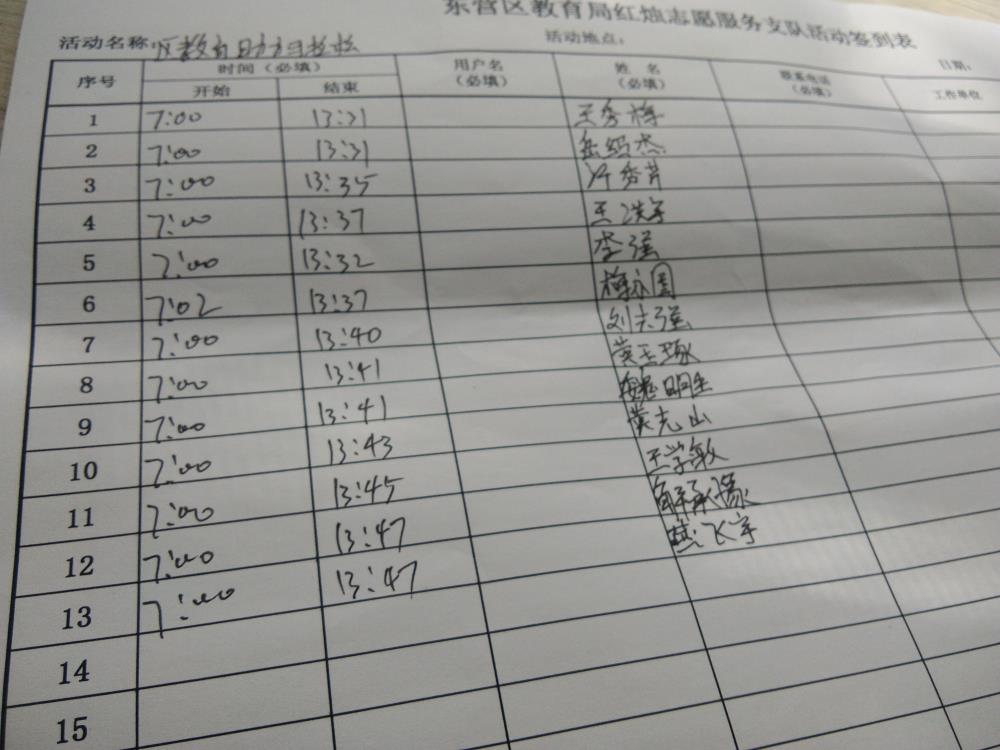 东营区教育局红烛志愿服务支队活动签到表
活动名称：区教育局 活动地点： 日期：
序号 时间（必填） 用户名（必填） 姓名（必填） 联系电话（必填） 工作单位
开始 结束
1 7:00 13:31 王秀梅
2 7:00 13:31 岳绍杰
3 7:00 13:35 许秀芹
4 7:00 13:37 王洪宇
5 7:00 13:32 李强
6 7:02 13:37 梅永国
7 7:00 13:40 刘夫强
8 7:00 13:41 黄玉琢
9 7:00 13:41 魏明生
10 7:00 13:43 黄克山
11 7:00 13:45 王学敏
12 7:00 13:47 解承
13 7:00 13:47 燕飞宇
14
15